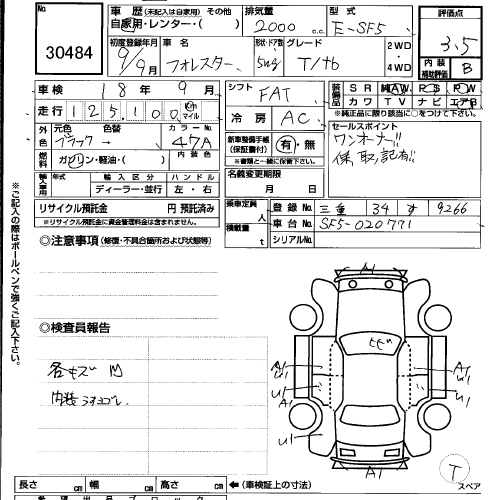 No.
30484
車歴 (未記入は自家用) その他
自家用・レンター・( )
排気量
2000 c.c.
型式
E-SF5
評価点
3.5
内装
補助評価
B
初度登録年月
9/9月
車名
フォレスター
形状・ドア数
5wg
グレード
T/tb
2WD
・
4WD
車検
18年 9月
走行
125,100
Km
マイル
シフト
FAT
冷房
AC
装備品
SR AW PS PW
カワ TV ナビ エアB
*純正品に限り該当に○をつけて下さい
外色
元色 色替
ブラック→
カラーNo.
47A
内装色
燃料
ガソリン・軽油・( )
新車整備手帳
(保証書付)
有・無
※書類と一緒に保管下さい。
セールスポイント
ワンオーナー!!
保、取、記有
輸入車用
年式
輸入区分
ディーラー・並行
ハンドル
左・右
名義変更期限
月 日
リサイクル預託金 円 預託済み
※リサイクル預託金に資金管理料金は含まれません。
乗車定員
人
積載量
t
登録No.
三重 34 す 9266
車台No.
SF5-020771
シリアルNo.
◎注意事項(修復・不具合箇所および状態等)
※ご記入の際はボールペンで強くご記入下さい。
◎検査員報告
各キズ 凹
内装
A1
A1
U1
A1
U1
A1
U1
U1
U1
A1
T
スペア
長さ cm 幅 cm 高さ cm
←(車検証上の寸法)